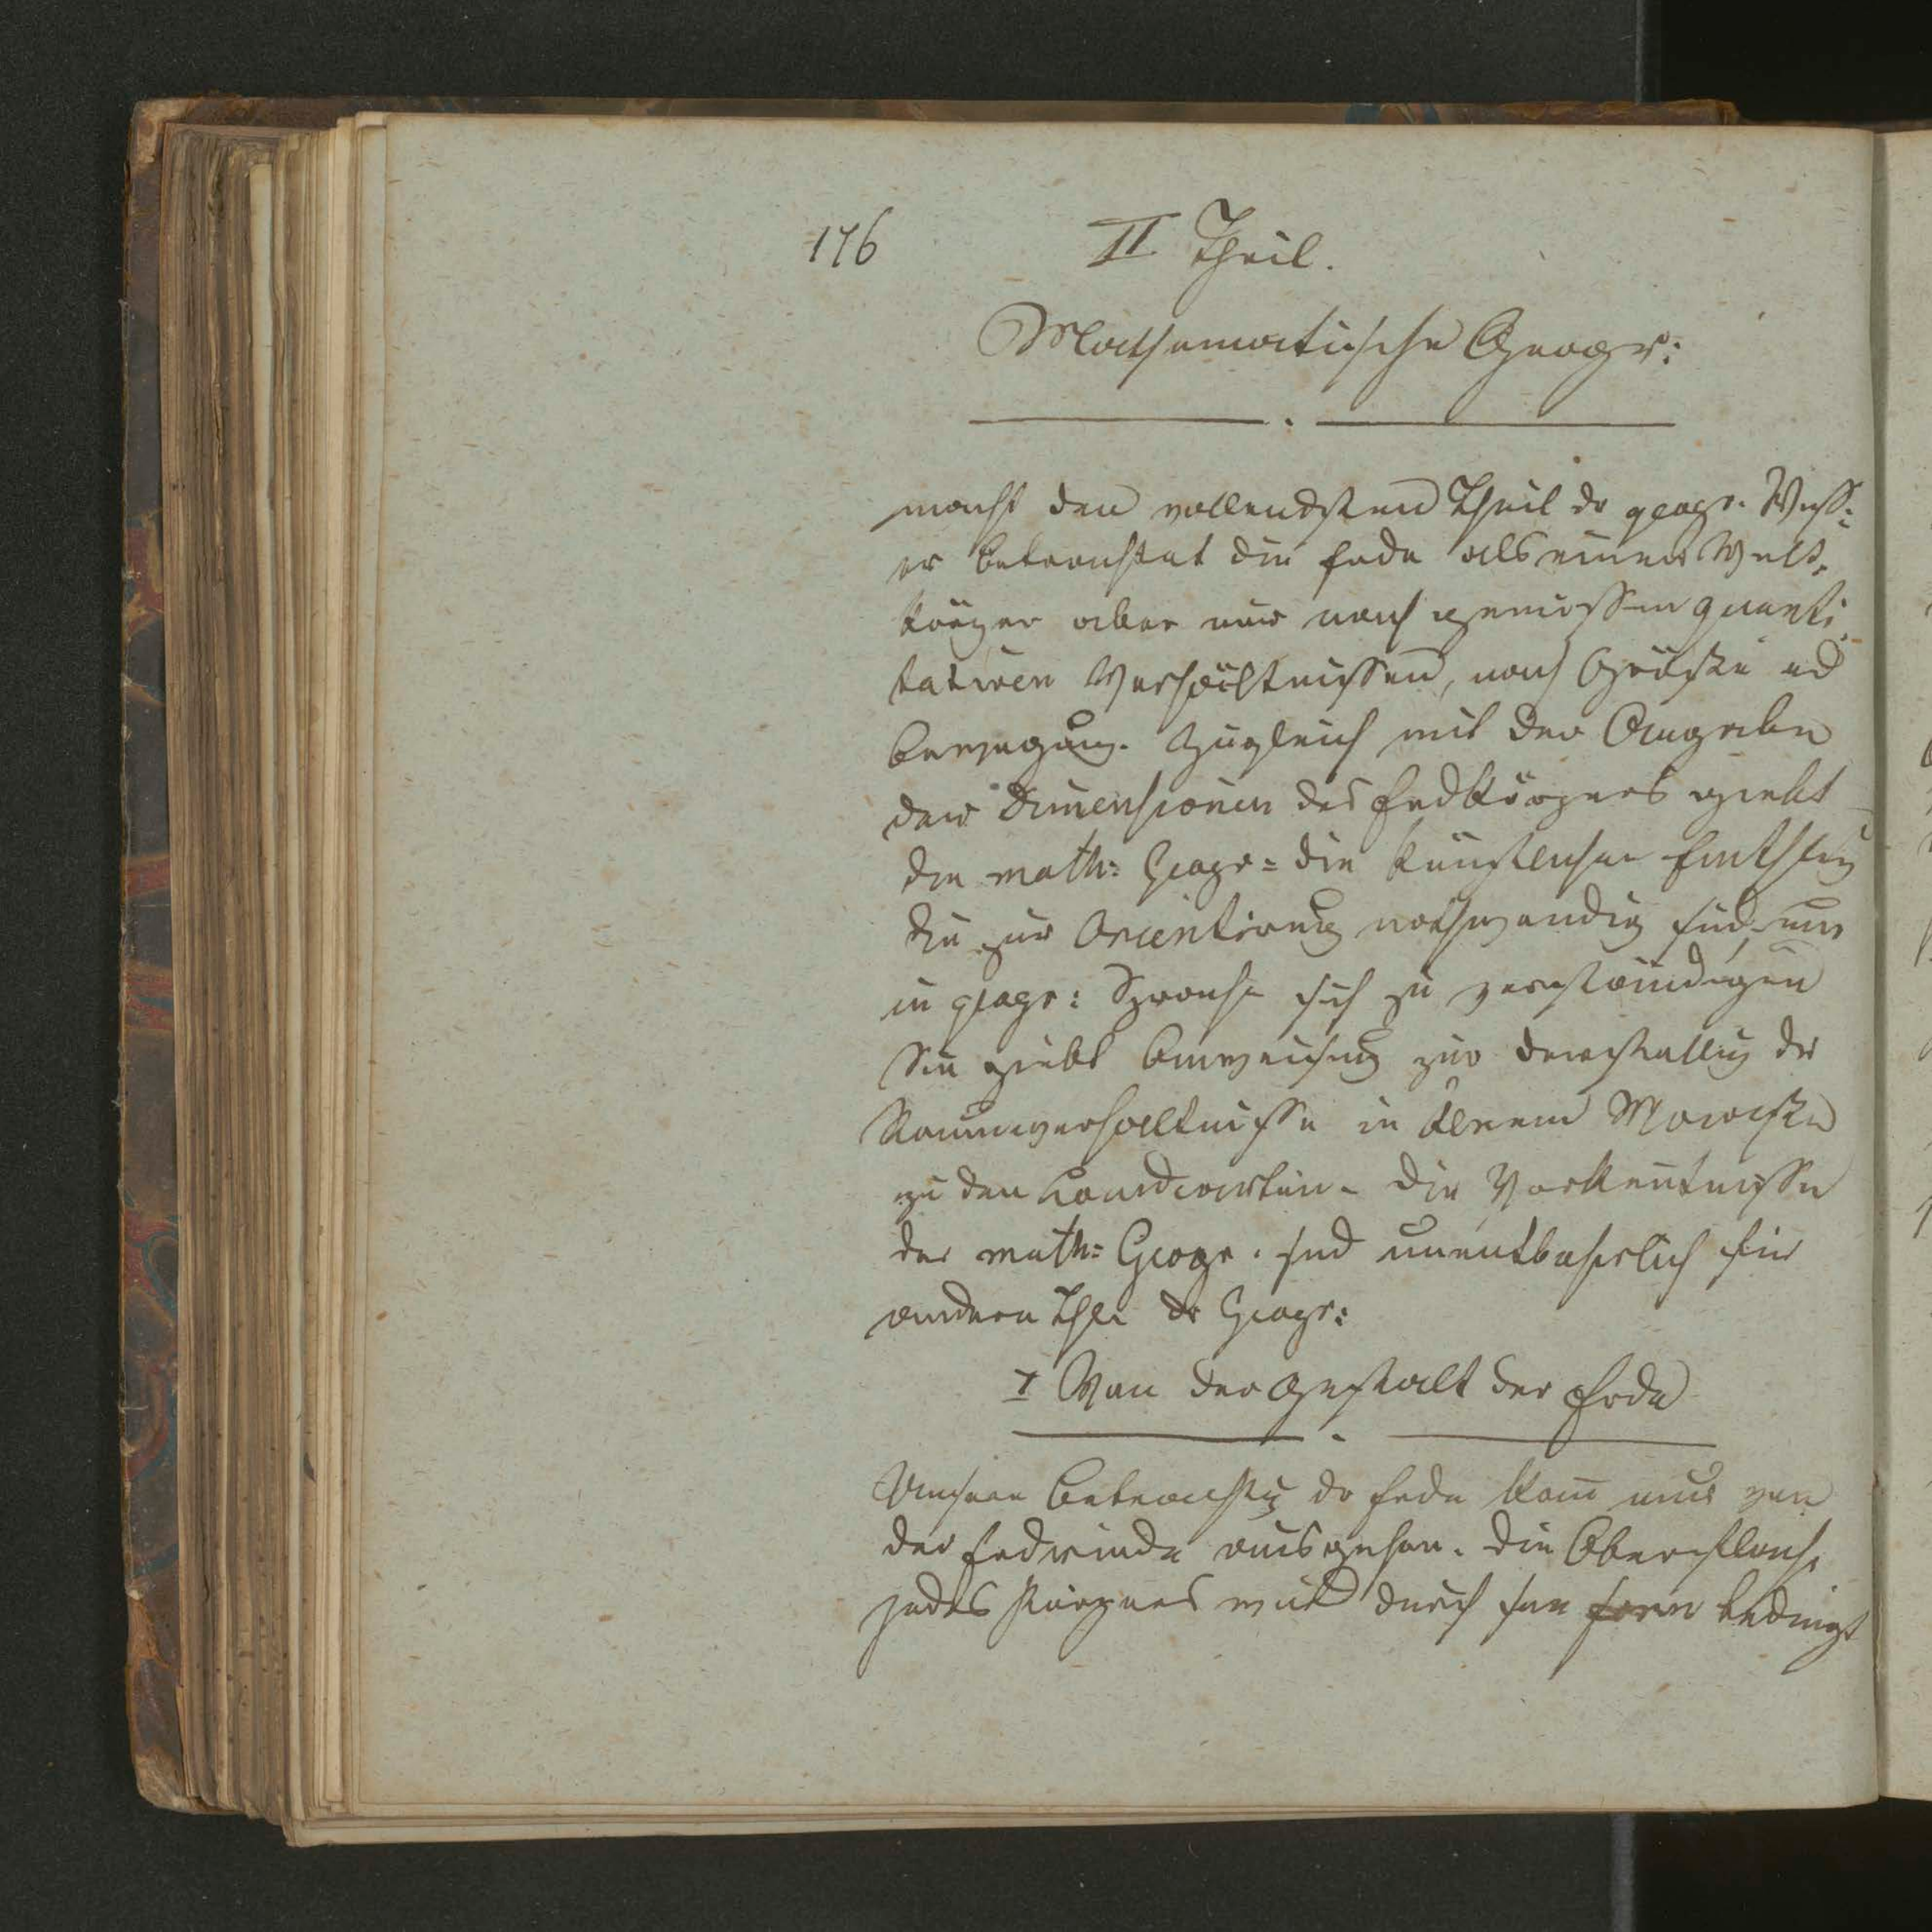 176
II Theil.
Mathematische Geogr:
macht den vollendsten Theil dr geogr. Wiss:
er betrachtet die Erde als einen Welt-
körper aber nur nach gewissen quanti-
tativen Verhältnissen, nach Größe ud
Bewegung. Zugleich mit der Angabe
der Dimensionen des Erdkörpers giebt
die math: Geogr: die künstlichen Einthlug
die zur Orientirung nothwendig sind, um
in geogr: Sprache sich zu verständigen
Sie giebt Anweisung zur Darstellug der
Raumverhältnisse in kleinem Maaßste
zu den Landcarten. Die Vorkentnisse
der math: Geogr. sind unentbehrlich für
andere Thle dr Geogr:
I Von der Gestalt der Erde
Unsere Betrachtg dr Erde kann nur von
der Erdrinde ausgehen. Die Oberfläche
jedes Körpers wird durch sein form bedingt